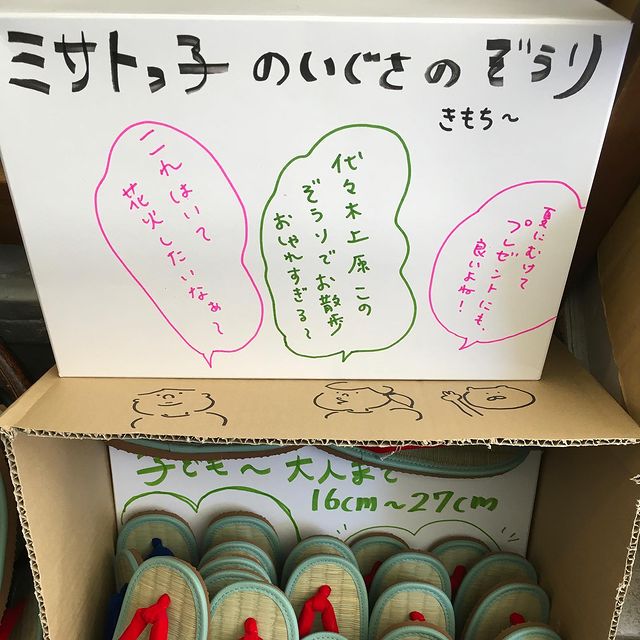 ミサトっ子 のいぐさの ぞうり
きもち〜
これはいて
花火したいなぁ〜
代々木上原この
ぞうりでお散歩
おしゃれすぎる〜
夏にむけて
プレゼントにも、
良いよね!
子ども〜大人まで
16cm〜27cm